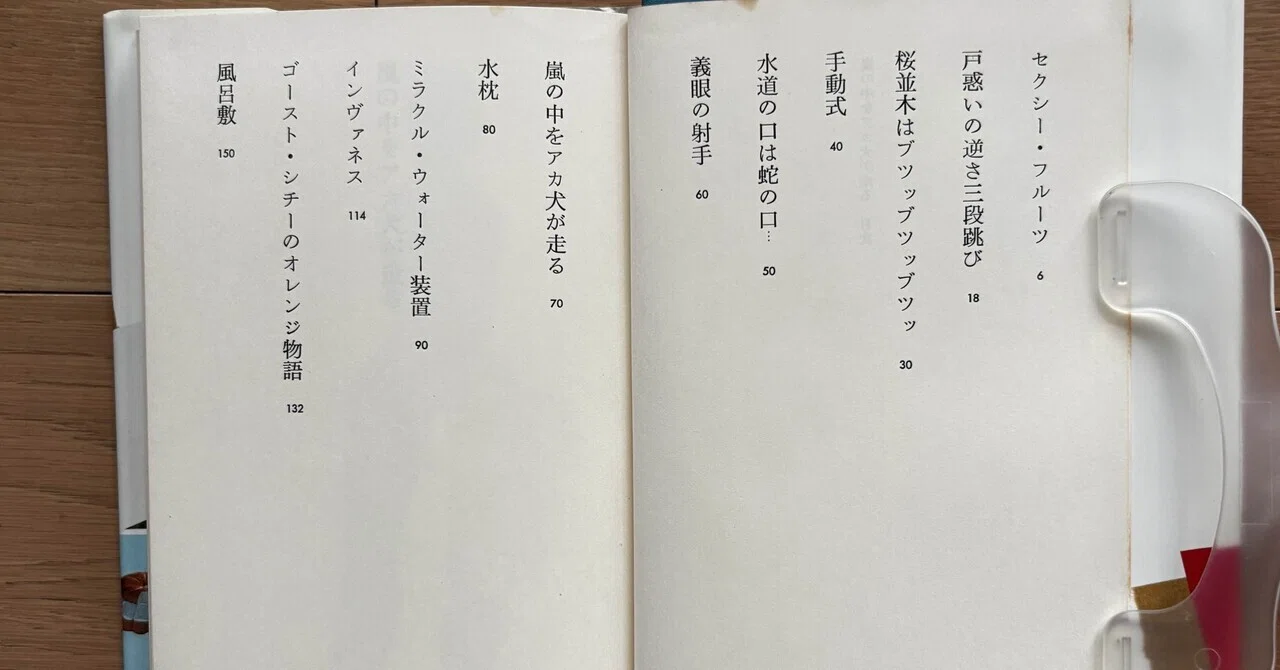 セクシー・フルーツ 6
戸惑いの逆さ三段跳び 18
桜並木はブツッブツッブツッ 30
手動式 40
水道の口は蛇の口… 50
義眼の射手 60
嵐の中をアカ犬が走る 70
水枕 80
ミラクル・ウォーター装置 90
インヴァネス 114
ゴースト・シチーのオレンジ物語 132
風呂敷 150